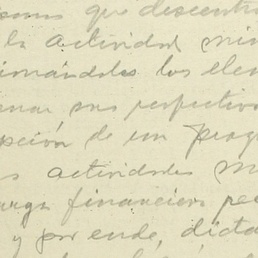 que descentr
la actividad min
los elem
sus respectivo
pción de un progr
s actividades m
financiero pe
y por ende, dicta